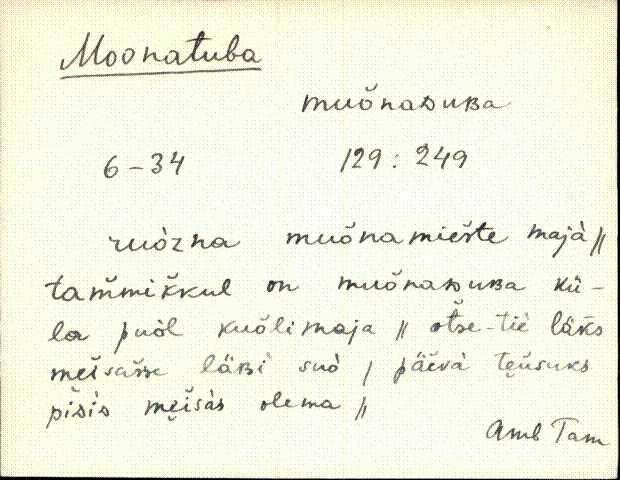 Moonatuba
muõnaᴅuʙa
6-34 129: 249
ruòzna muõnamiešte majà ||
tam̆mik̆kul on muõnaᴅuʙa kü-
la puòl kuõlimaja || ot̆se-tiè läk̆s
meis̆asse läʙi suò , päevà
pis̆is meis̆às olema ||
Amb Tam